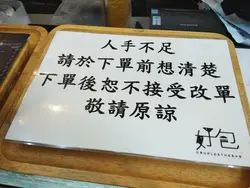 人手不足
請於下單前想清楚
下單後恕不接受改單
敬請原諒
好包